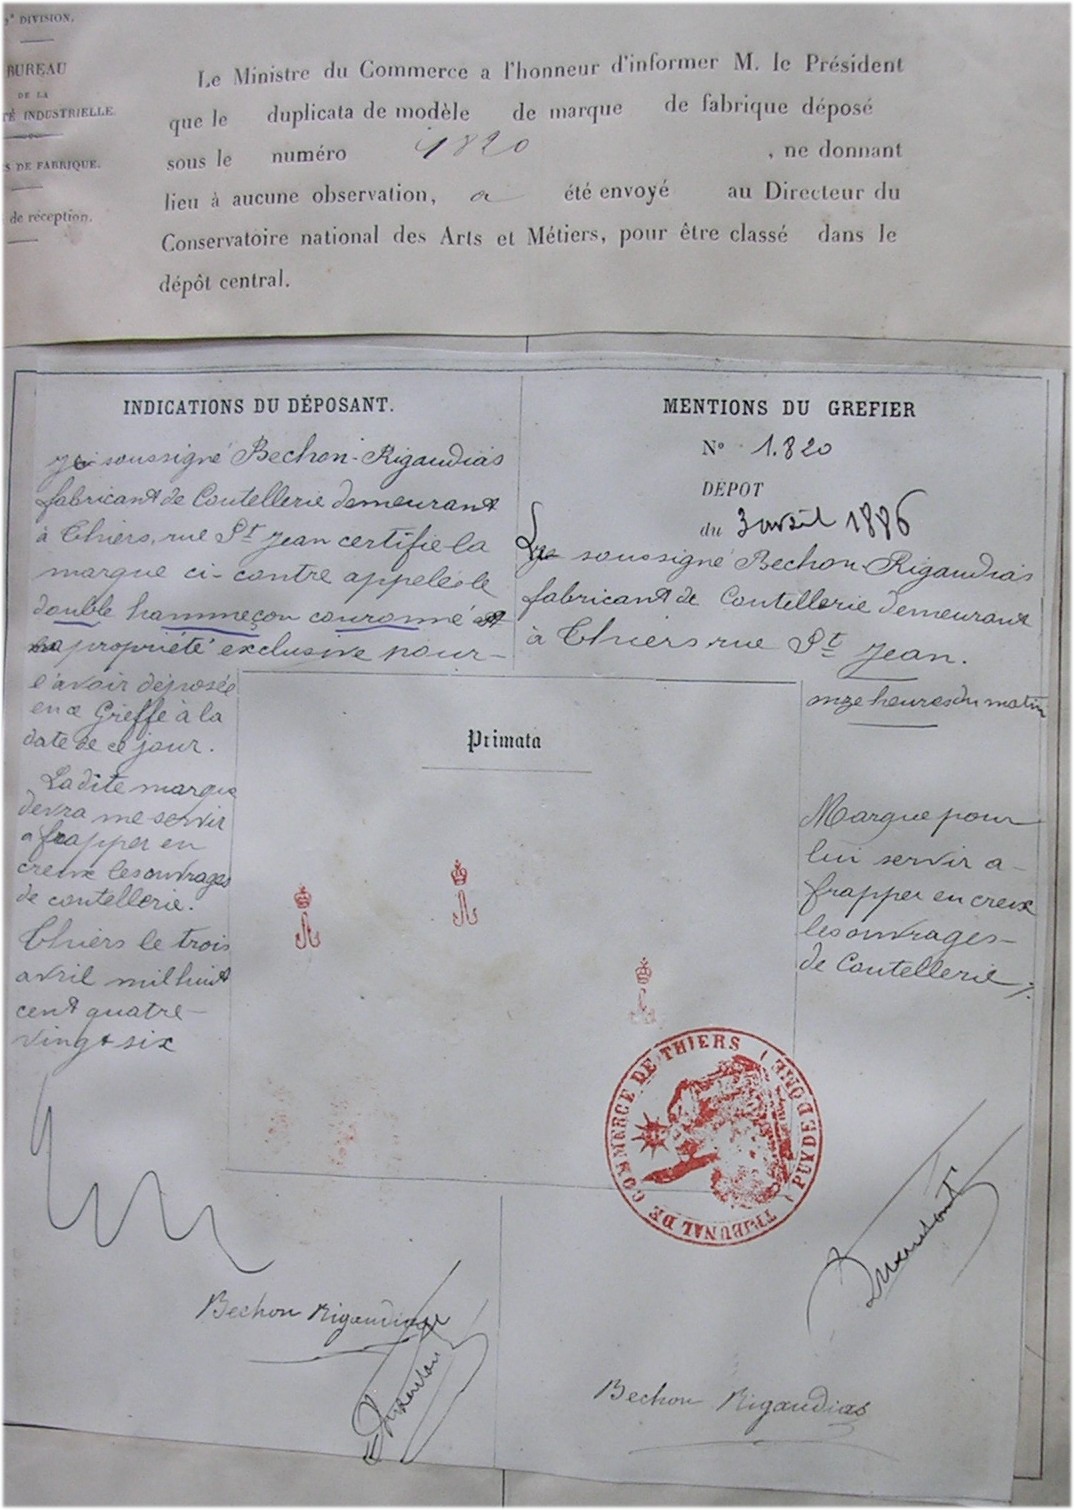 2e DIVISION.
BUREAU
DE LA
TÉ INDUSTRIELLE.
S DE FABRIQUE.
de réception.
Le Ministre du Commerce a l'honneur d'informer M. le Président
que le duplicata de modèle de marque de fabrique déposé
sous le numéro 1820 , ne donnant
lieu à aucune observation, a été envoyé au Directeur du
Conservatoire national des Arts et Métiers, pour être classé dans le
dépôt central.
INDICATIONS DU DÉPOSANT.
Je soussigné Bechon-Rigaudias
fabricant de Coutellerie demeurant
à Thiers, rue St Jean certifie la
marque ci-contre appelée le
double hammeçon couronné et
ma propriété exclusive pour
l'avoir déposée
en ce Greffe à la
date de ce jour.
La dite marque
devra me servir
a frapper en
creux les ouvrages
de coutellerie.
Thiers le trois
avril mil huit
cent quatre-
vingt six
Bechon Rigaudias
MENTIONS DU GREFIER
No 1.820
DÉPOT
du 3 avril 1886
Le soussigné Bechon-Rigaudias
fabricant de Coutellerie demeurant
à Thiers rue St Jean.
onze heures du matin
Primata
Marque pour
lui servir a
frapper en creux
les ouvrages
de Coutellerie.
TRIBUNAL DE COMMERCE DE THIERS (PUY DE DOME)
Bechon Rigaudias